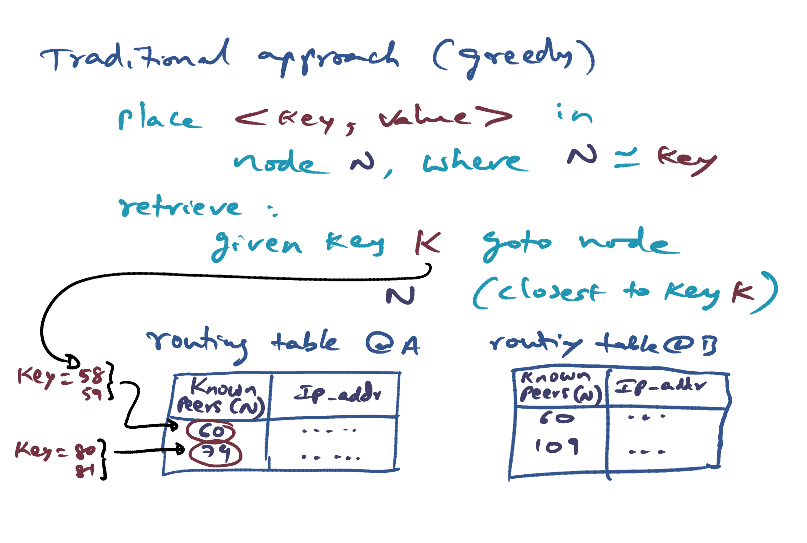 Traditional approach (greedy)
place <key, value> in
node N, where N ≃ key
retrieve :
given key K goto node
N (closest to key K)
routing table @ A
routing table @ B
Key = 58
59
Known Peers (N)
Ip-addr
60
.....
79
.....
Key = 80
81
Known Peers (N)
IP-addr
60
...
109
...